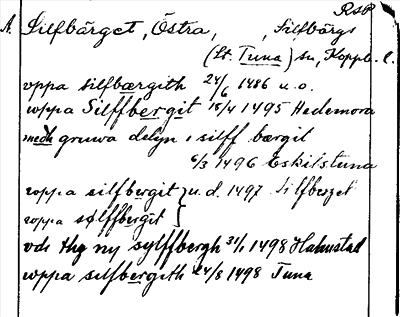 RSP
A. Silfbärget, Östra, , Silfbärgs
(St. Tuna) sn, Kopp. l.
vppa silfbærgith 24/6 1486 u.o.
wppa Silffbergit 15/4 1495 Hedemora
medh gruwa delyn i silff bærgit
6/3 1496 Eskilstuna
roppa silfbergit } u.d. 1497 Silfberget
roppa sølffbergit
vdi thz ny sylffbergh 31/1 1498 Halmstad
wppa silfbergith 24/8 1498 Tuna